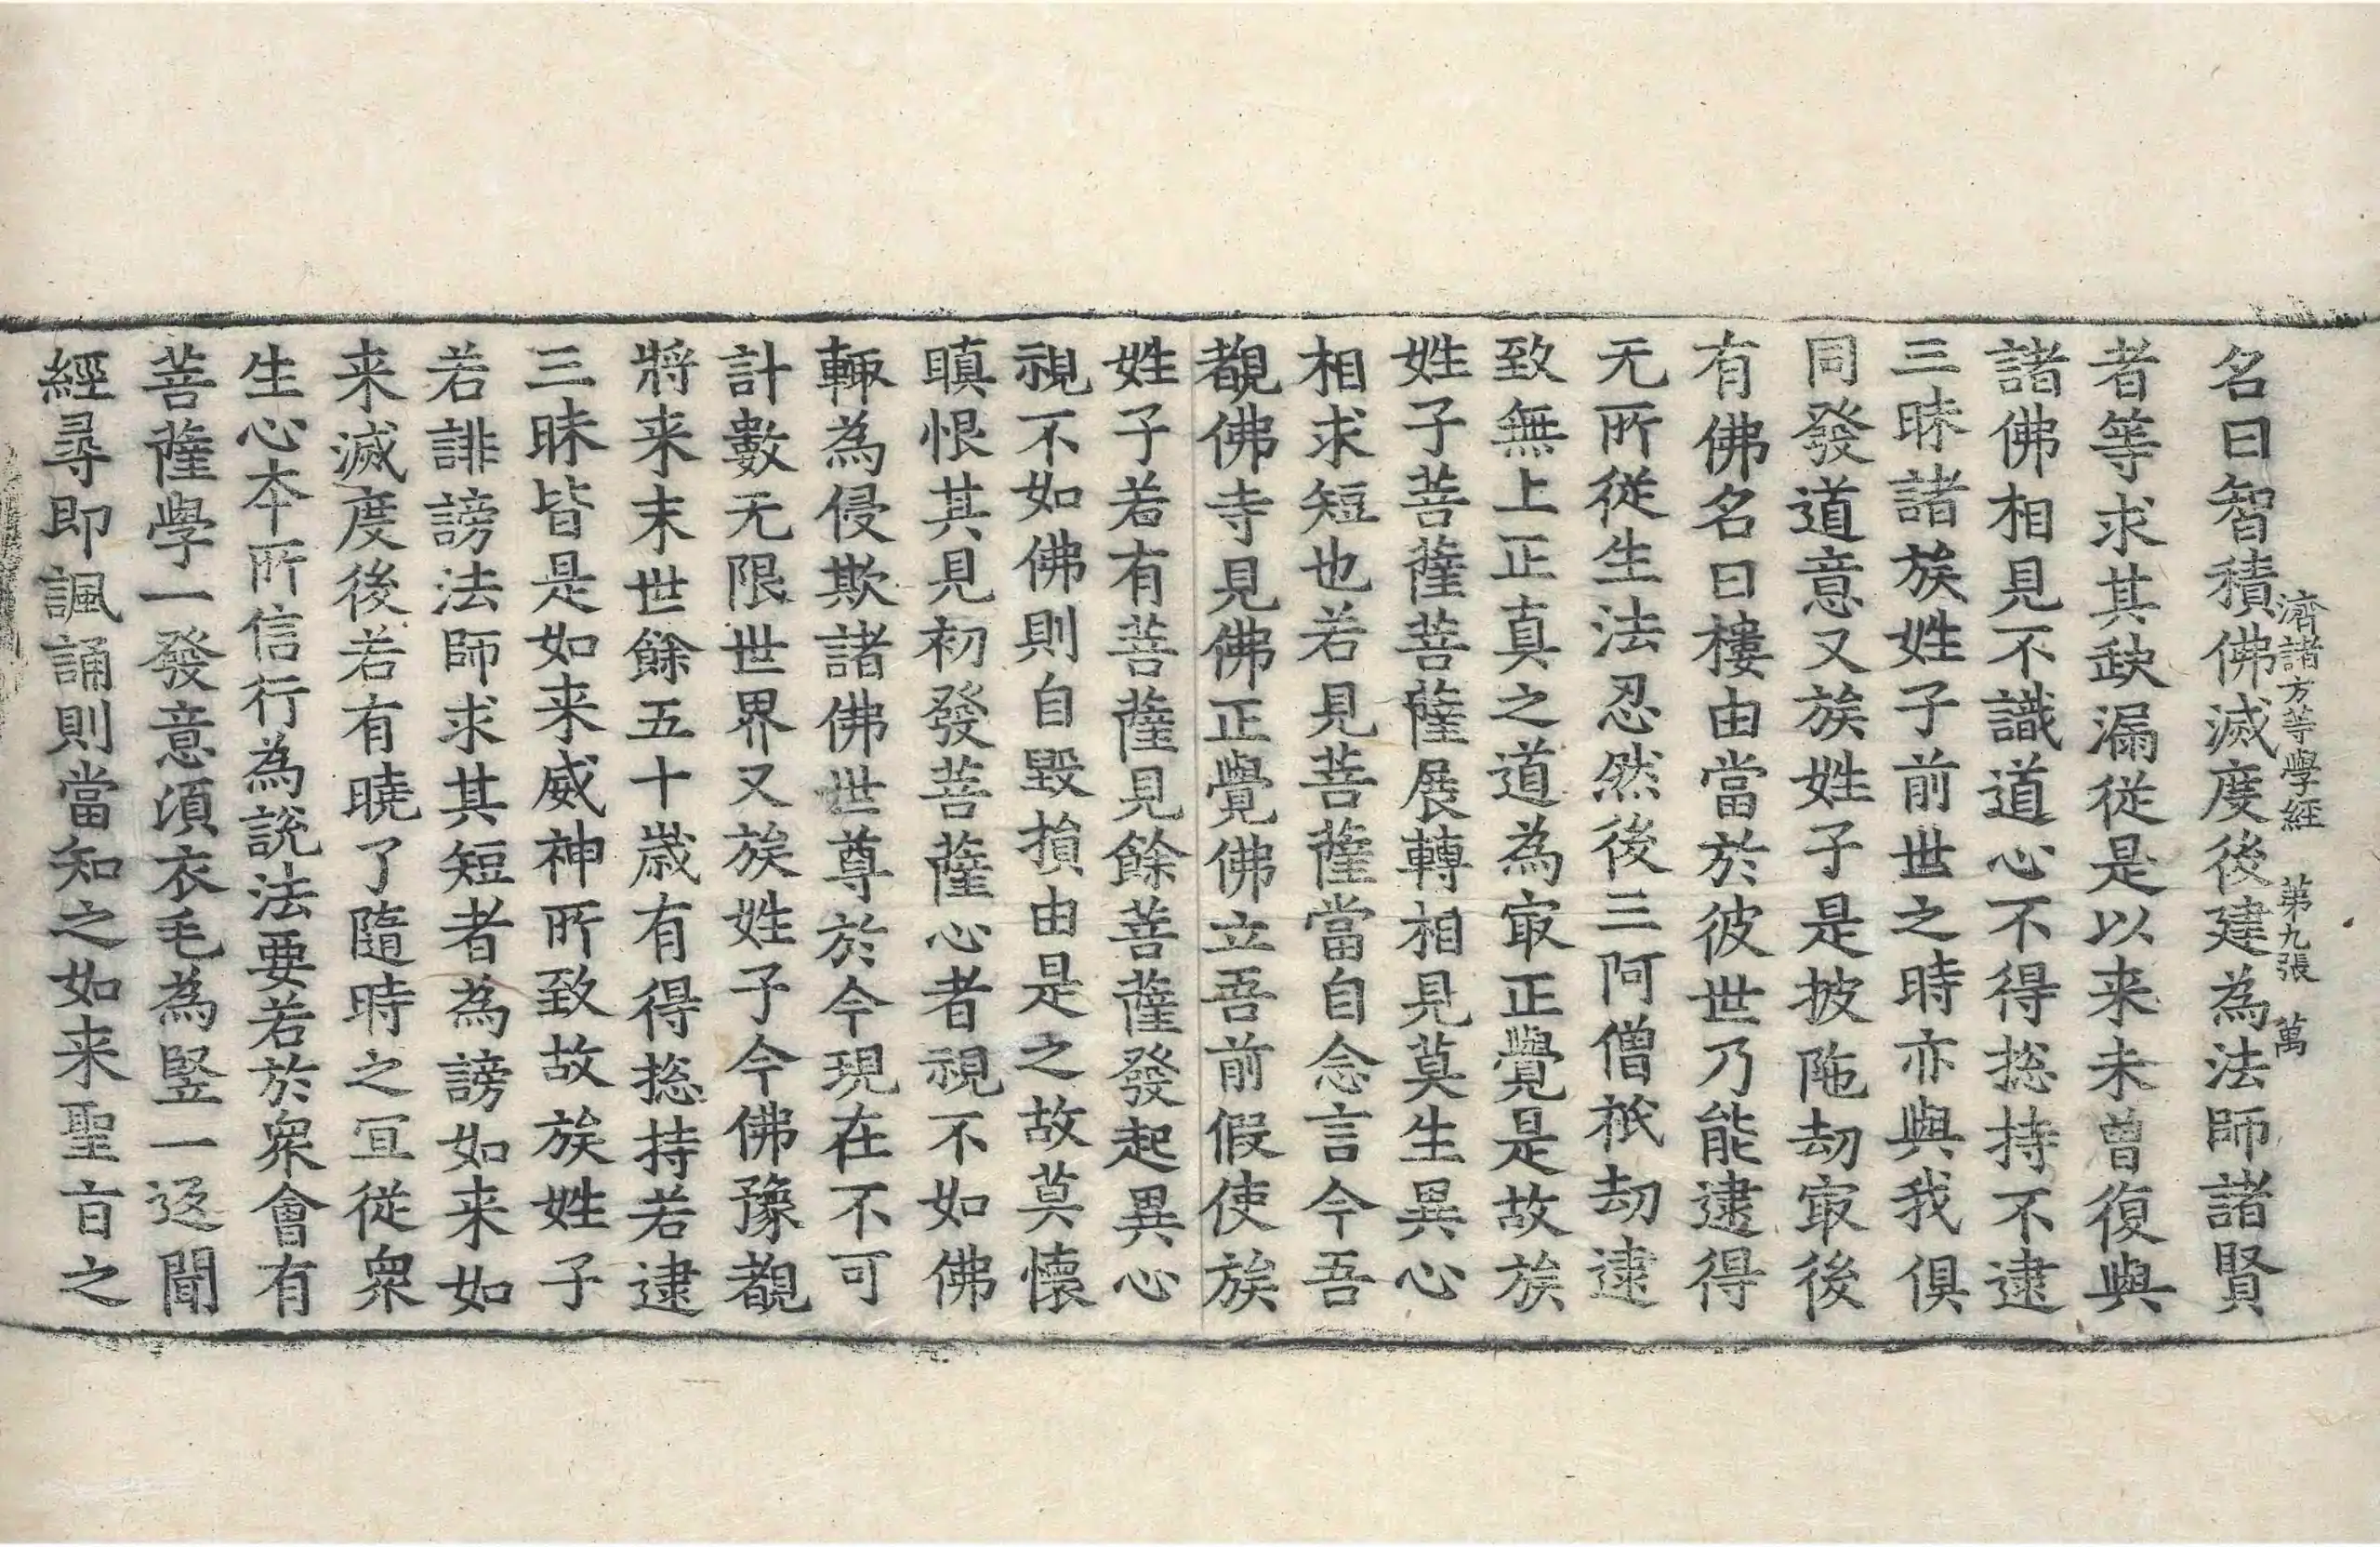 濟諸方等學經 第九張 萬
名曰智積佛滅度後建為法師諸賢
者等求其䞃漏從是以来未曾復與
諸佛相見不識道心不得捴持不逮
三昧諸族姓子前世之時亦與我俱
同發道意又族姓子是披陁劫㝡後
有佛名曰樓由當於彼世乃能逮得
无所從生法忍然後三阿僧祇劫逮
致無上正真之道為㝡正覺是故族
姓子菩薩菩薩展轉相見莫生異心
相求短也若見菩薩當自念言今吾
覩佛寺見佛正覺佛立吾前假使族
姓子若有菩薩見餘菩薩發起異心
視不如佛則自毀損由是之故莫懷
瞋恨其見初發菩薩心者視不如佛
輙為侵欺諸佛世尊於今現在不可
計數无限世界又族姓子今佛豫覩
將来末世餘五十歲有得捴持若逮
三昧皆是如来威神所致故族姓子
若誹謗法師求其短者為謗如来如
来滅度後若有曉了隨時之宜從衆
生心本所信行為說法要若於衆會有
菩薩學一發意湏衣毛為竪一返聞
經尋即諷誦則當知之如来聖旨之